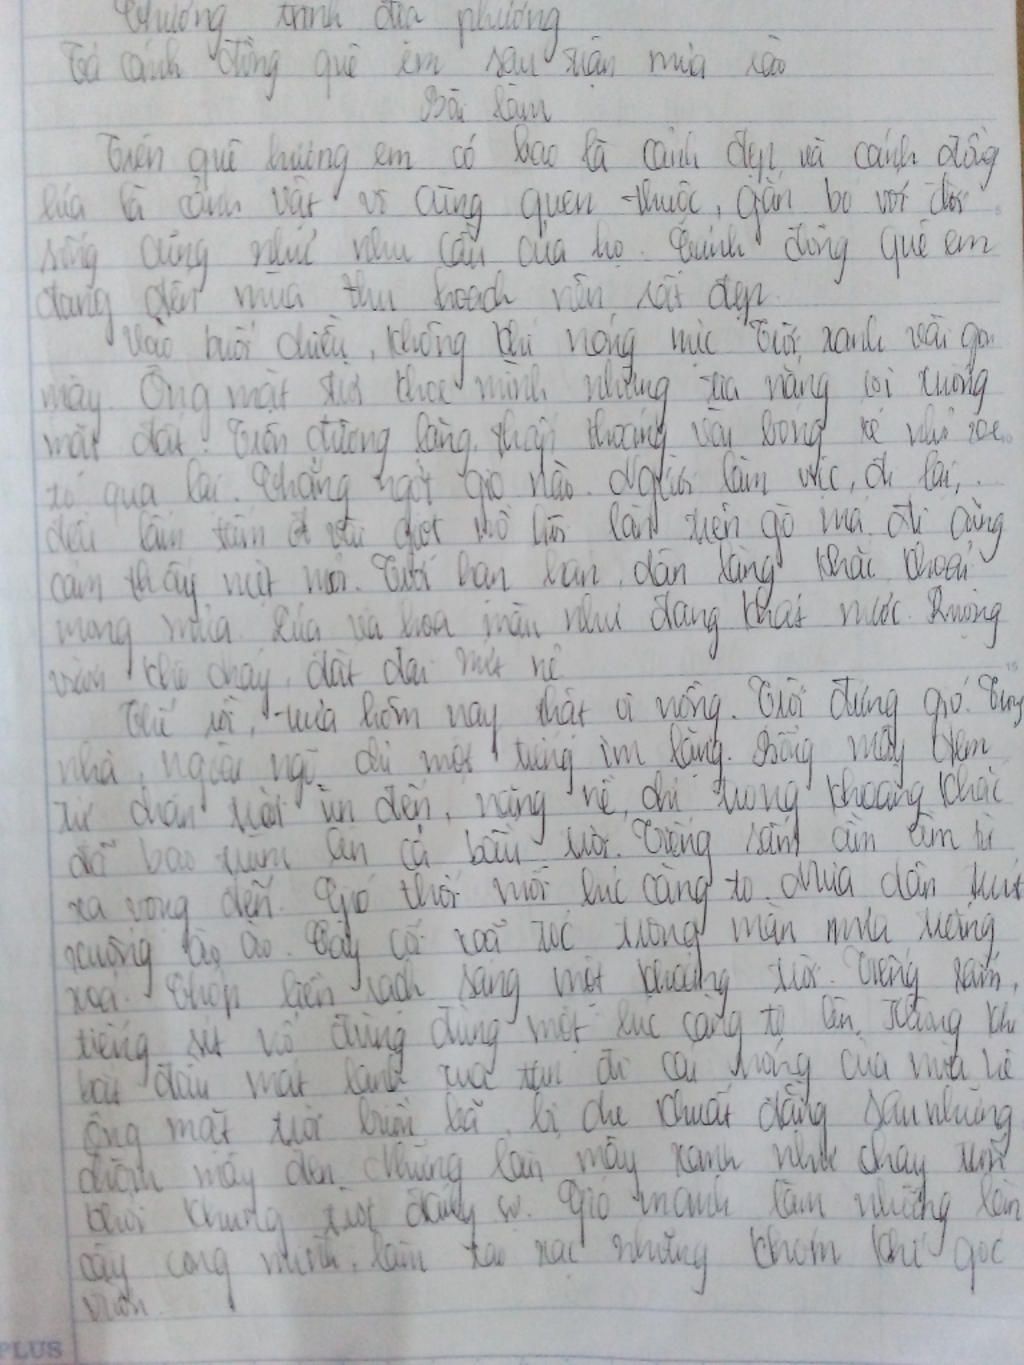 Chương trình địa phương
Tả cánh đồng quê em sau trận mưa rào
Bài làm
Trên quê hương em có bao là cảnh đẹp và cánh đồng
lúa là cảnh vật vô cùng quen thuộc, gắn bó với đời
sống cũng như nhu cầu của họ. Cánh đồng quê em
đang đến mùa thu hoạch nên rất đẹp.
Vào buổi chiều, không khí nóng nức. Trời xanh vài gợn
mây. Ông mặt trời khoe mình những tia nắng rọi xuống
mặt đất. Trên đường làng, thấp thoáng vài bóng
qua lại. Chẳng ngọt gió nào. Người làm việc, đi lại,
đều lấm tấm vài giọt mồ hôi lăn trên gò má. Ai cũng
cảm thấy mệt mỏi. Trời han hán, dân làng khắc khoải
mong mưa. Lúa và hoa màu như đang khát nước. Ruộng
vườn khô cháy, đất đai nứt nẻ
Thế rồi, trưa hôm nay thật oi nồng. Trời đứng gió. Trong
nhà, ngoài ngõ đều một tiếng im lặng. Bỗng mây đen
từ chân trời ùn đến, nặng nề, chỉ trong khoảng khắc
đã bao trùm lên cả bầu trời. Tiếng sấm ầm ầm từ
xa vọng đến. Gió thổi mỗi lúc càng to. Mưa dần trút
xuống ào ào. Cây cối xoã tóc trong màn mưa trắng
xoá. Chớp liên rạch sáng một khoảng trời. Tiếng sấm,
tiếng sét nổ đùng đùng một lúc càng to lên. Không khí
bắt đầu mát lành xua tan đi cái nóng của mùa hè
Ông mặt trời buồn bã, bị che khuất đằng sau những
đám mây đen. Những làn mây xanh như chạy trốn
khỏi khung trời đáng sợ. Gió mạnh làm những làn
cây cong mình, làm xao xác những khóm khế góc
vườn.